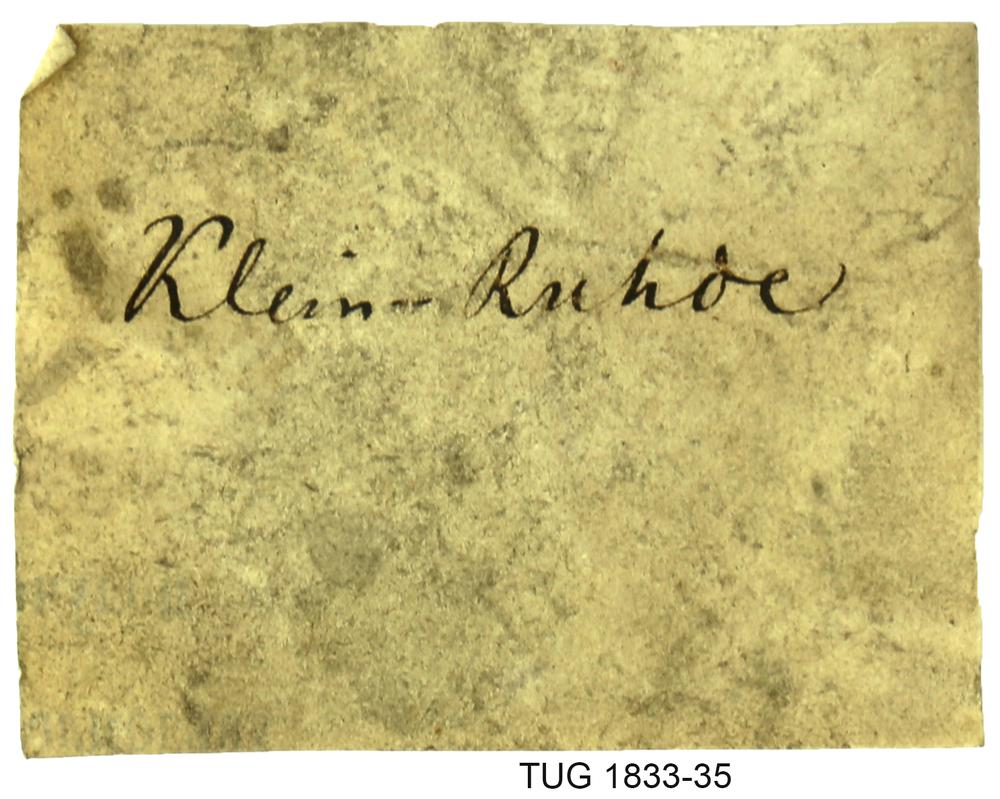 Klein-Ruhde
TUG 1833-35